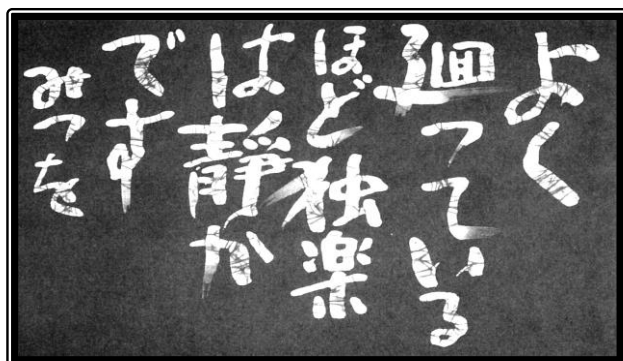 よく
廻っている
ほど独楽
は静か
です
みつを